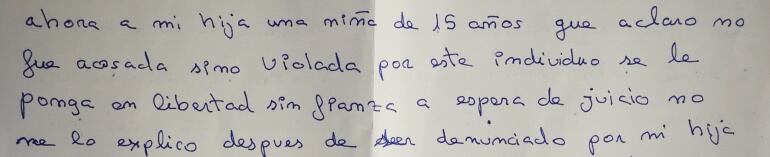 ahora a mi hija una niña de 15 años que aclaro no
fue acosada sino violada por este individuo se le
ponga en libertad sin fianza a espera de juicio no
me lo explico despues de ser denunciado por mi hija